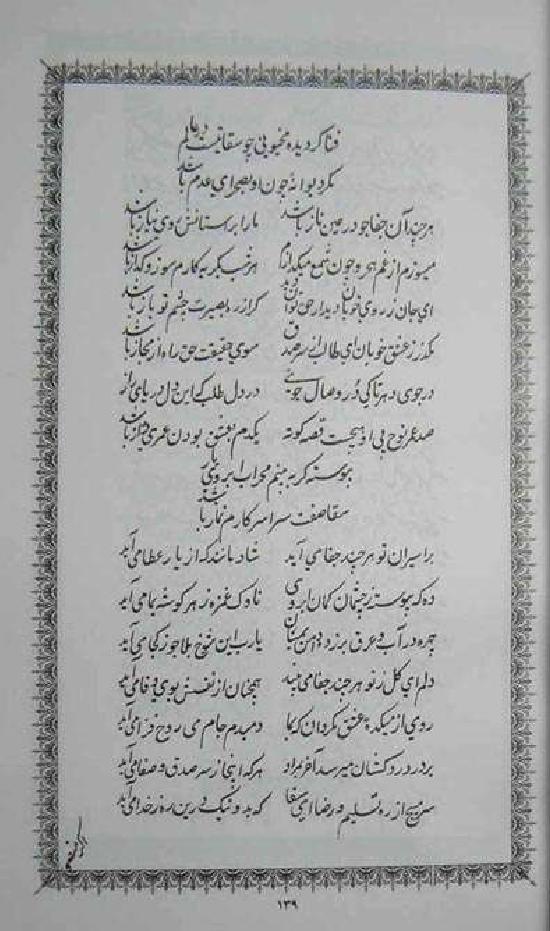 فنا گردیده محبوبی چو سقانیست در عالم
مگر دیوانهٔ چون او بصحرای عدم باشد
هر چند آن جفاجو در عین ناز باشد ما را بر ستانش روی نیاز باشد
میسوزم از غم هجر و چون شمع میگدازم هر شب مگر به کارم سوز و گداز باشد
ای جان ز روی خوبان دیدار حق توان دید گر از ره بصیرت چشم تو باز باشد
مگذر ز عشق خوبان ای طالب از سر صدق سوی حقیقت حق راه از مجاز باشد
در جوی دهر تا کی در وصال جویی در دل طلب که این دل دریای راز باشد
صد عمر نوح بی او هیچست قصه کوته یکدم بعشق بودن عمری دراز باشد
پیوسته گر به بینم محراب ابروی یار
مقاصفت سراسر کارم نماز باشد
بر اسیران تو هر چند جفا می آید شاد مانند که از یار عطا می آید
ده که پیوسته ز چشمان کمان ابروی ناوک غمزه ز هر گوشه بما می آید
چهره در آب و عرق بر زده دامن بمیان یارب این شوخ بلا جو ز کجا می آید
دلم ای گل ز تو هر چند جفا می بیند همچنان از نفسش بوی وفا می آید
روی از میکدهٔ عشق مگردان که بما دمبدم جام می روح فزا می آید
بر در دردکشان میرسد آخر بمراد هر که اینجا ز سر صدق و صفا می آید
سر مپیچ از ره تسلیم و رضا ای سقا که بد و نیک درین ره ز خدا می آید
۱۳۹